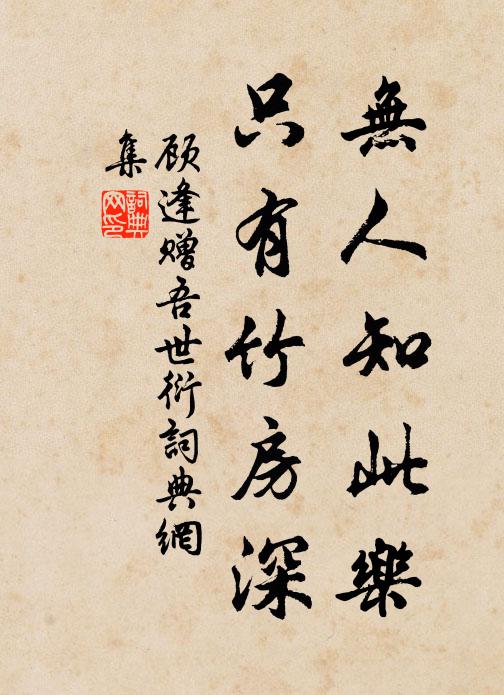 無人知此樂
只有竹房深
顧逢贈吾世衍詞典網
集
詞典
网印